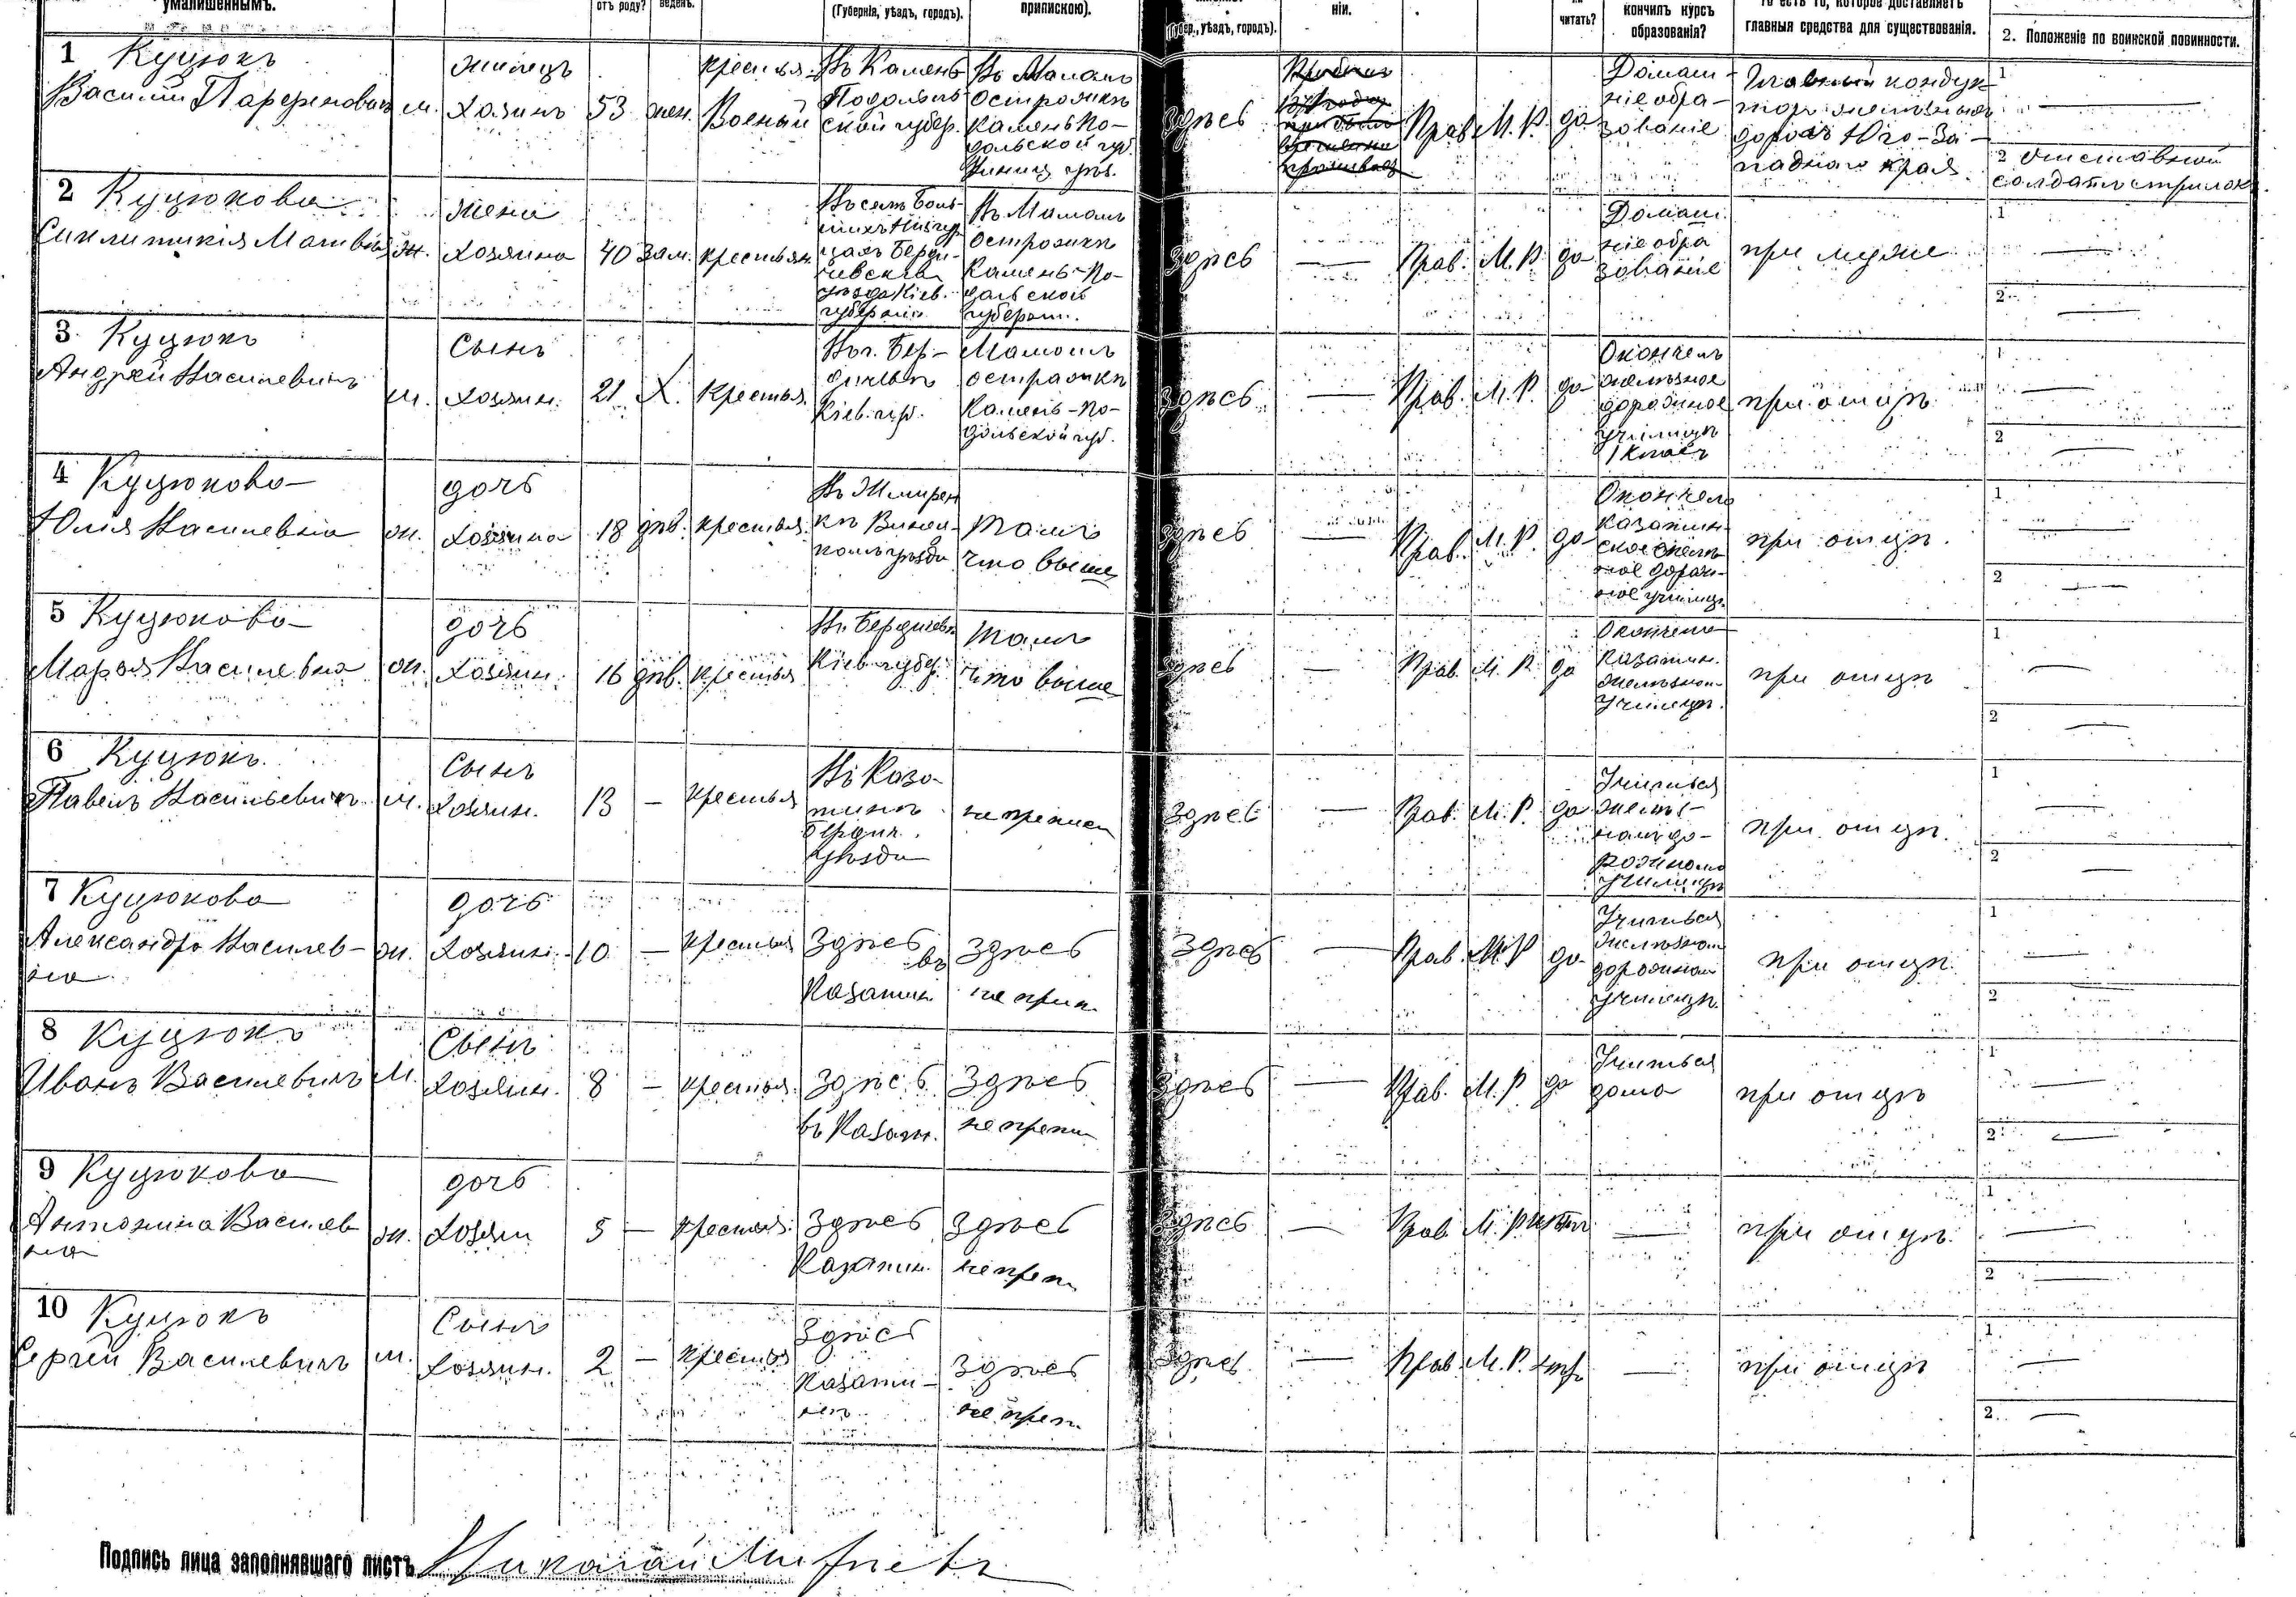 умалишеннымъ.
отъ роду?
(Губернія, уѣздъ, городъ).
припискою).
уѣздъ, городъ).
ніи.
читать?
кончилъ курсъ
образованія?
то есть то, которое доставляетъ
главныя средства для существованія.
2. Положеніе по воинской повинности.
1 Куцюкъ
Василій Парфеновичъ
м.
Жилецъ
Хозяинъ
53
жен.
крестья.
Военый
Въ Камень
Подольс
ской губер.
Камень По-
дольской губ.
здѣсь
Прав.
М. Р.
да
Домаш-
ніе обра-
зованіе
Главный кондук
тор
дорогъ Юго-За-
паднаго края.
1
2 Отставной
солдатъ стрелокъ
2 Куцюкова
ж.
Жена
хозяина
40
зам.
крестьян.
Берди-
чевскаго
уѣзда Кіев.
губерніи
Камень-По-
дольской
губерніи.
здѣсь
Прав.
М. Р.
да
Домаш.
ніе обра
зованіе
при муже
1
2
3 Куцюкъ
Андрей Василевичъ
м.
Сынъ
хозяин.
21
Х.
Крестья.
Въ г. Бер-
дичевѣ
Кіев. губ.
Камень-По-
дольской губ.
здѣсь
Прав.
М. Р.
да
Окончилъ
желѣзное
дорожное
училище
1 клас
при отцѣ
1
2
4 Куцюкова
Юлія Василевна
ж.
дочь
хозяина
18
дѣв.
крестья.
Въ Жмерен
кѣ Винни-
комъ уѣзди
Тамъ
что выше
здѣсь
Прав.
М. Р.
да
Окончела
казатин-
ское желѣз
ное дорож-
ное училищ.
при отцѣ.
1
2
5 Куцюкова
Марія Василевна
ж.
дочь
хозяин.
16
дѣв.
крестья
Въ Бердичевѣ
Кіев. губер.
Тамъ
что выше
здѣсь
Прав.
М. Р.
да
Окончела
Казатин.
желѣзное
училище.
при отцѣ
1
2
6 Куцюкъ.
Павелъ Васильевичъ
м.
Сынъ
хозяин.
13
крестья
Въ Каза-
тинѣ
Бердич.
уѣзди
не препис
здѣсь
Прав.
М. Р.
да
Учиться
желѣз-
номъ до-
рожномъ
училищѣ
при отцѣ.
1
2
7 Куцюкова
Александра Василев-
на
ж.
дочь
хозяин.
10
крестья
Здѣсь
въ
Казатин.
здѣсь
не прип.
здѣсь
Прав.
М. Р
да
Учиться
желѣзном
дорожном
училищѣ.
при отцѣ.
1
2
8 Куцюкъ
Иванъ Василевичъ
М.
Сынъ
хозяин.
8
крестья.
здѣсь
въ Казат.
здѣсь
не препи
здѣсь
Прав.
М. Р
да
Учиться
дома
при отцѣ
1
2
9 Куцюкова
Антонина Василев
на
ж.
дочь
хозяи
5
крестья.
здѣсь
Казатин.
здѣсь
не преп.
здѣсь
Прав.
М. Р.
нѣтъ
при отцѣ.
1
2
10 Куцюкъ
Сергей Василевичъ
м.
Сынъ
хозяин.
2
крестья
здѣсь
Казати-
нѣ
здѣсь
не преп.
здѣсь
Прав.
М. Р.
при отцѣ
1
2
Подпись лица заполнявшаго листъ Николай